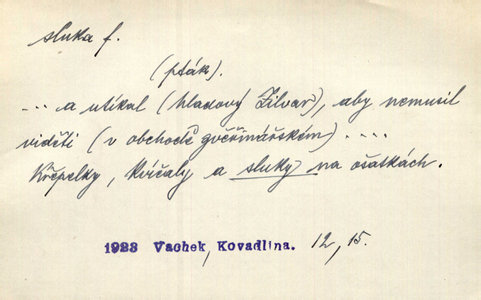 sluka f.
(pták).
... a utíkal (hladový Žilvar), aby nemusil
viděti (v obchodě zvěřinářském) ....
Křepelky, kvíčaly a sluky na ošatkách.
1923 Vachek, Kovadlina. 12, 15.